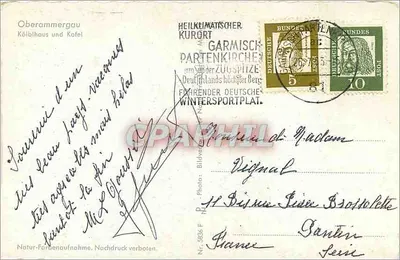 Oberammergau
Kölblhaus und Kofel
HEILKLIMATISCHER
KURORT
GARMISCH
PARTENKIRCHEN
und der ZUGSPITZE
Deutschlands höchster Berg
FÜHRENDER DEUTSCHER
WINTERSPORTPLATZ.
DEUTSCHE
BUNDES
POST
5
DEUTSCHE
BUNDES
POST
10
Souvenir d'un
très beau pays. vacances
très agréables mais hélas
bientôt la fin
Monsieur et Madame
Vignal
11 Bis rue Pierre Brossolette
Pantin
Seine
France
CPAPHIL
Natur-Farbenaufnahme. Nachdruck verboten.
Nr. 5836 P